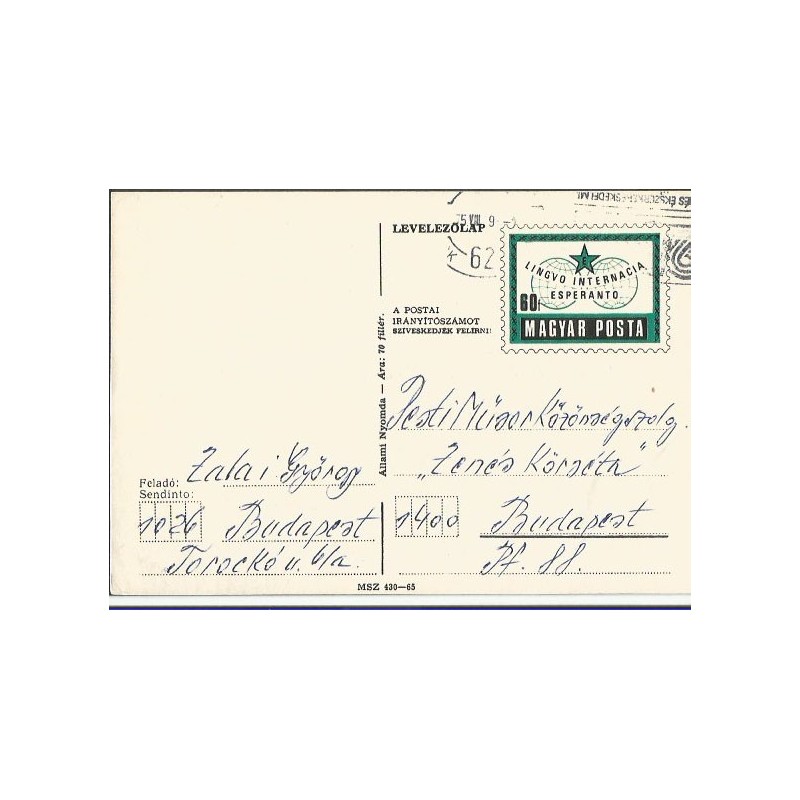 LEVELEZŐLAP
62
LINGVO INTERNACIA
E
ESPERANTO
60f
MAGYAR POSTA
A POSTAI
IRÁNYÍTÓSZÁMOT
SZÍVESKEDJÉK FELÍRNI!
Állami Nyomda — Ára: 70 fillér.
Pesti Műsor Közönségszolg.
"Zenés Körséta"
1400 Budapest
Pf. 88.
Feladó: Zalai György
Sendinto:
1026 Budapest
Torockó u. 6/a.
MSZ 430—65